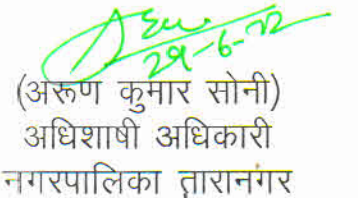 29-6-22
(अरूण कुमार सोनी)
अधिशाषी अधिकारी
नगरपालिका तारानगर